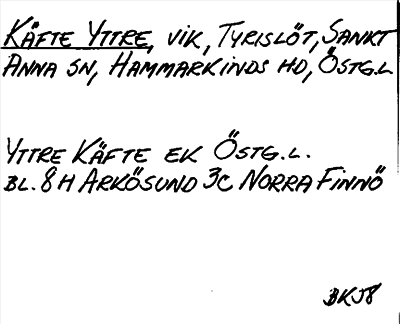 KÄFTE YTTRE, VIK, TYRISLÖT, SANKT
ANNA SN, HAMMARKINDS HD, ÖSTG.L
YTTRE KÄFTE EK ÖSTG.L.
BL. 8H ARKÖSUND 3C NORRA FINNÖ
BKJ8